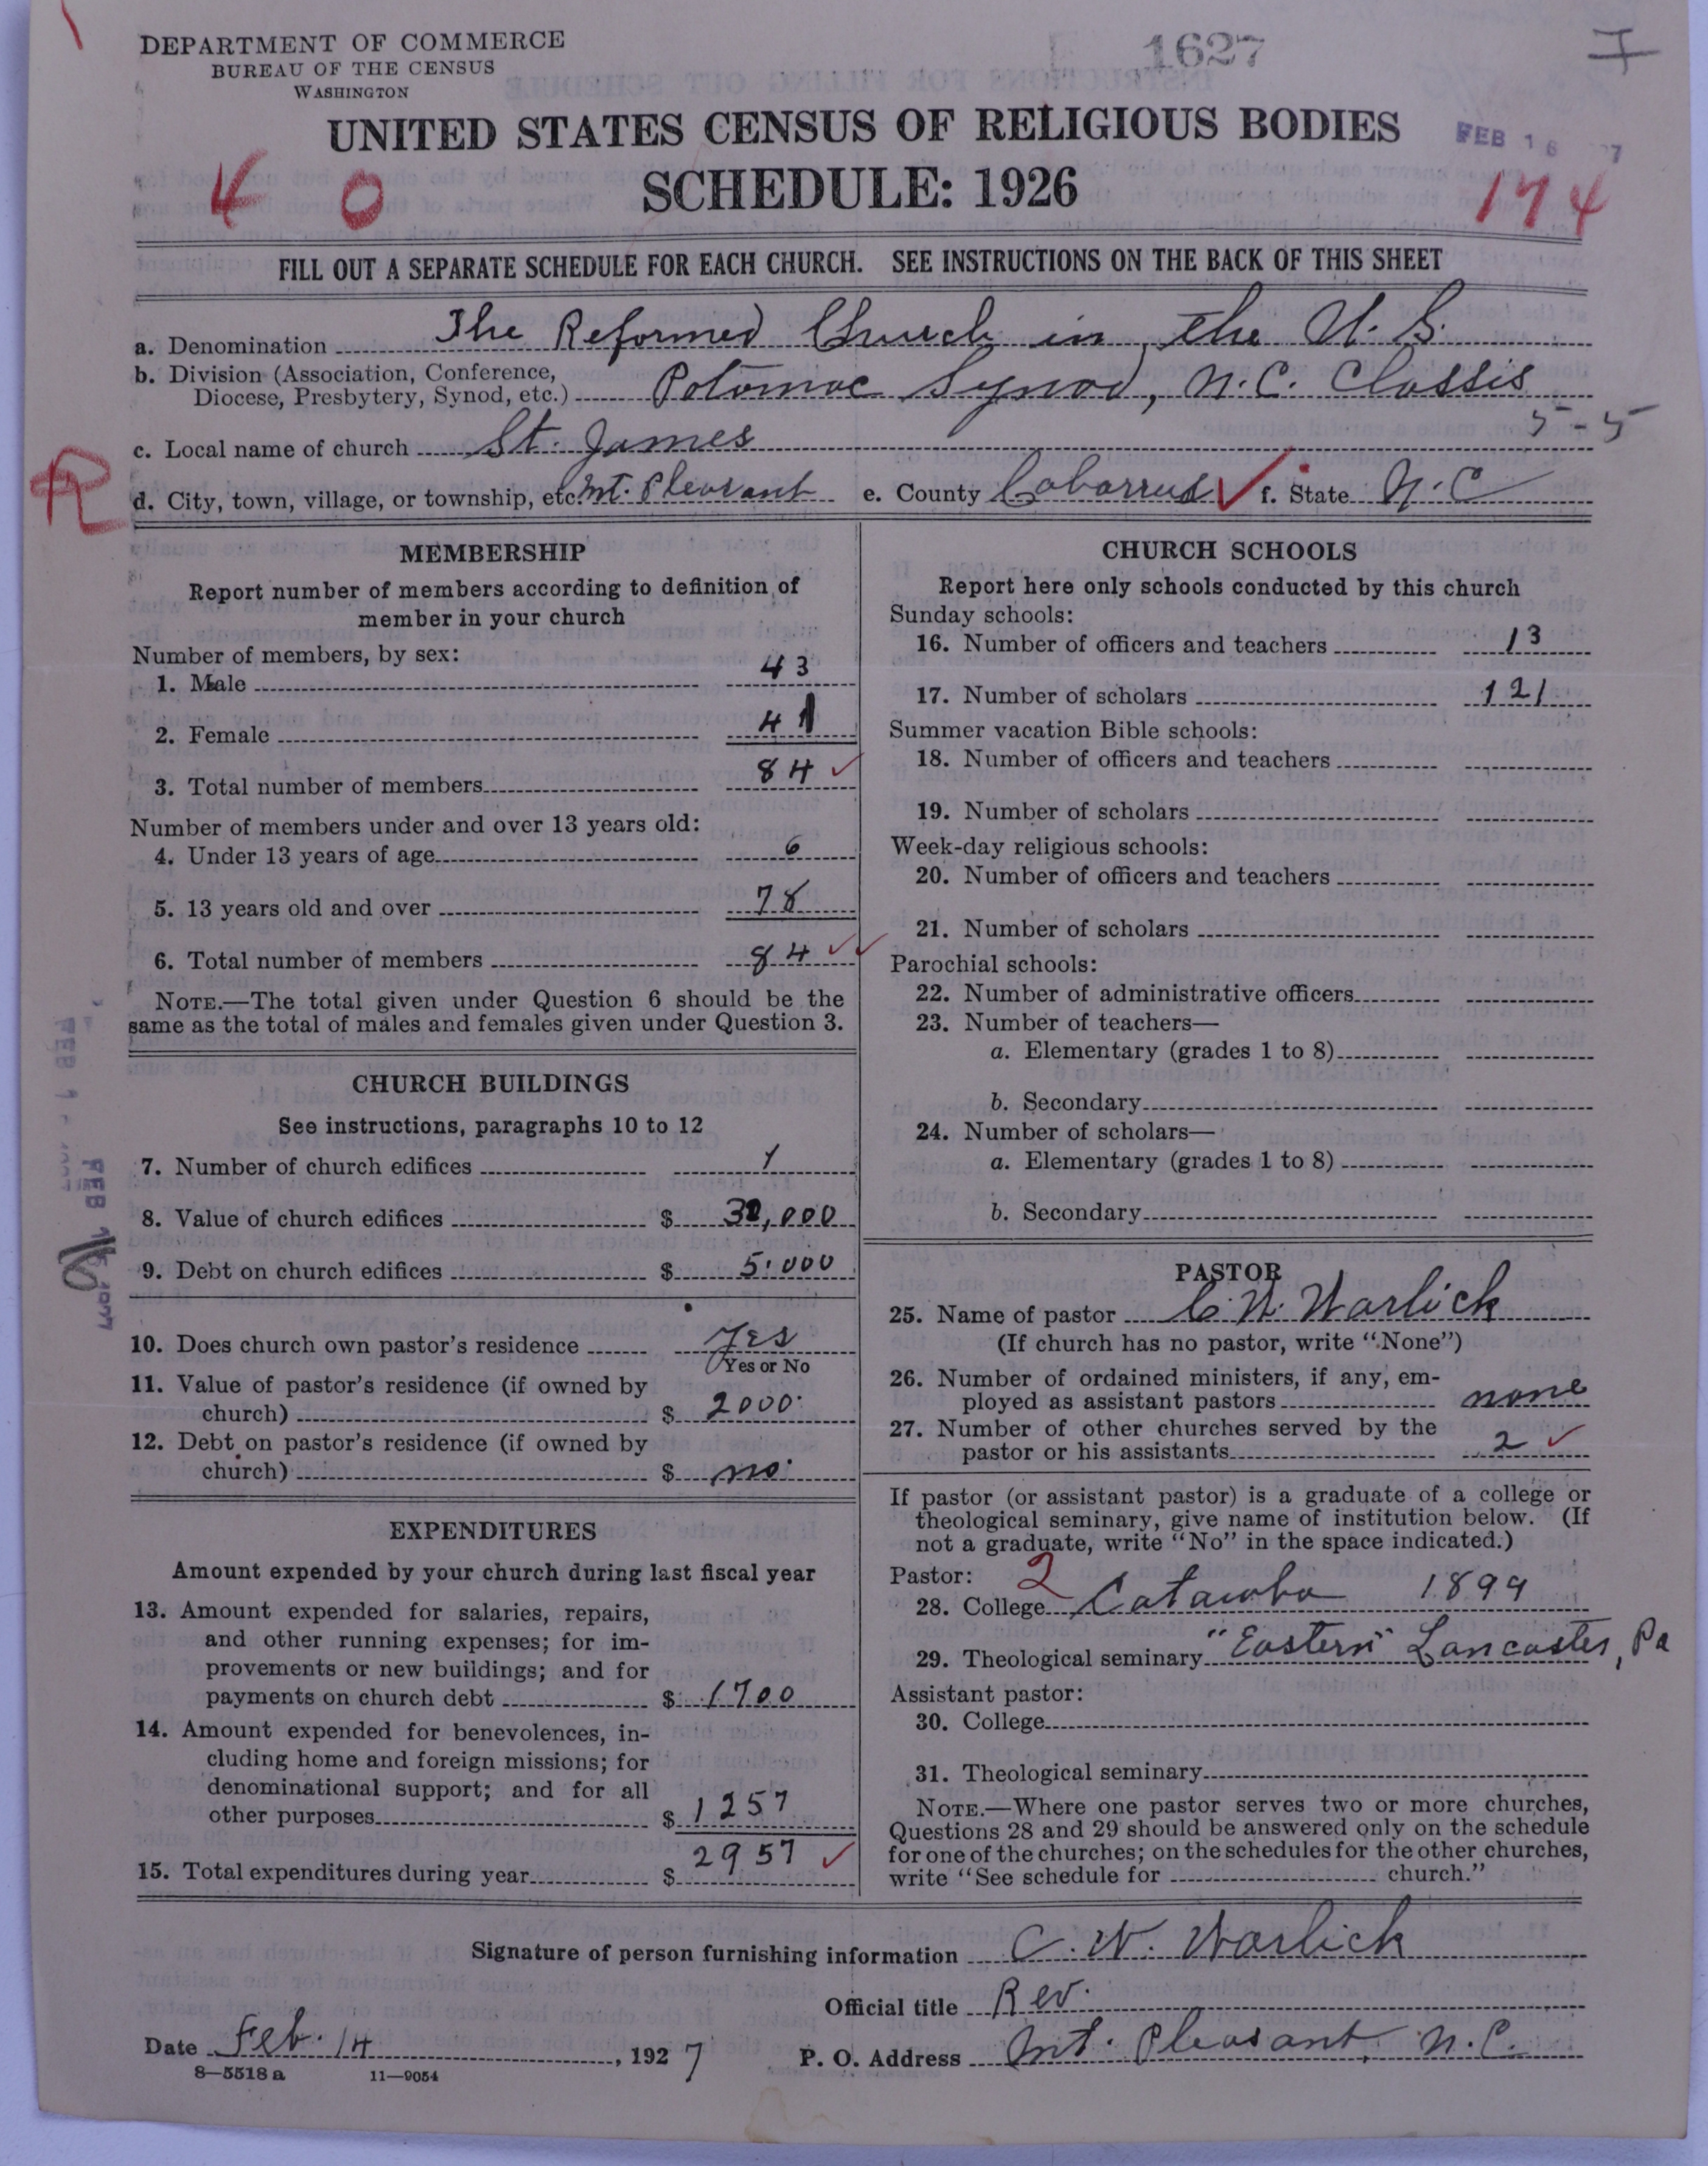 DEPARTMENT OF COMMERCE
BUREAU OF THE CENSUS
WASHINGTON
1627
UNITED STATES CENSUS OF RELIGIOUS BODIES
FEB 16
SCHEDULE: 1926
4 0
174
FILL OUT A SEPARATE SCHEDULE FOR EACH CHURCH. SEE INSTRUCTIONS ON THE BACK OF THIS SHEET
a. Denomination The Reformed Church in the U.S.
b. Division (Association, Conference, Diocese, Presbytery, Synod, etc.) Potomac Synod, N.C. Classis
5-5
c. Local name of church St. James
R
d. City, town, village, or township, etc. Mt. Pleasant e. County Cabarrus f. State N.C
MEMBERSHIP
Report number of members according to definition of
member in your church
Number of members, by sex:
1. Male 43
2. Female 41
3. Total number of members 84
Number of members under and over 13 years old:
4. Under 13 years of age 6
5. 13 years old and over 78
6. Total number of members 84
NOTE.—The total given under Question 6 should be the
same as the total of males and females given under Question 3.
CHURCH BUILDINGS
See instructions, paragraphs 10 to 12
7. Number of church edifices 1
8. Value of church edifices $ 30,000
9. Debt on church edifices $ 5.000
10. Does church own pastor's residence Yes
Yes or No
11. Value of pastor's residence (if owned by
church) $ 2000.
12. Debt on pastor's residence (if owned by
church) $ no.
EXPENDITURES
Amount expended by your church during last fiscal year
13. Amount expended for salaries, repairs,
and other running expenses; for im-
provements or new buildings; and for
payments on church debt $ 1700
14. Amount expended for benevolences, in-
cluding home and foreign missions; for
denominational support; and for all
other purposes $ 1257
15. Total expenditures during year $ 2957
CHURCH SCHOOLS
Report here only schools conducted by this church
Sunday schools:
16. Number of officers and teachers 13
17. Number of scholars 121
Summer vacation Bible schools:
18. Number of officers and teachers
19. Number of scholars
Week-day religious schools:
20. Number of officers and teachers
21. Number of scholars
Parochial schools:
22. Number of administrative officers
23. Number of teachers—
a. Elementary (grades 1 to 8)
b. Secondary
24. Number of scholars—
a. Elementary (grades 1 to 8)
b. Secondary
PASTOR
25. Name of pastor C.W. Warlick
(If church has no pastor, write "None")
26. Number of ordained ministers, if any, em-
ployed as assistant pastors none
27. Number of other churches served by the
pastor or his assistants 2
If pastor (or assistant pastor) is a graduate of a college or
theological seminary, give name of institution below. (If
not a graduate, write "No" in the space indicated.)
Pastor: 2
28. College Catawba 1899
29. Theological seminary "Eastern" Lancaster, Pa
Assistant pastor:
30. College
31. Theological seminary
NOTE.—Where one pastor serves two or more churches,
Questions 28 and 29 should be answered only on the schedule
for one of the churches; on the schedules for the other churches,
write "See schedule for church."
Signature of person furnishing information C. W. Warlick
Official title Rev.
Date Feb. 14, 1927 P. O. Address Mt. Pleasant, N.C.
8—5518 a 11—9054